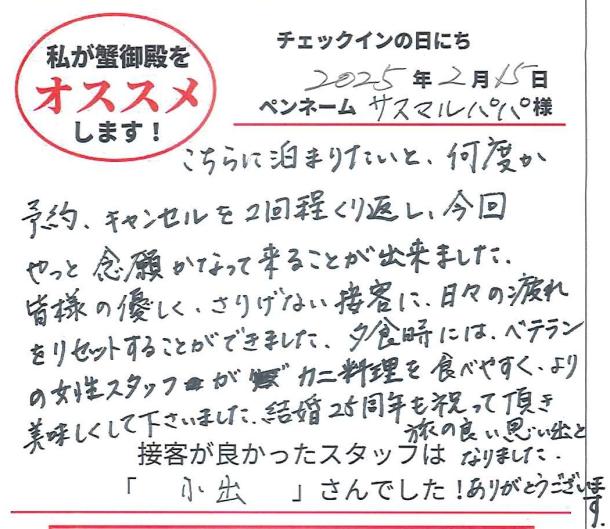 私が蟹御殿を
オススメ
します!
チェックインの日にち
2025年2月15日
ペンネーム サスマルパパ様
こちらに泊まりたいと、何度か
予約、キャンセルを2回程くり返し、今回
やっと念願かなって来ることが出来ました.
皆様の優しく、さりげない接客に、日々の疲れ
をリセットすることができました、夕食時には、ベテラン
の女性スタッフが カニ料理を食べやすく、より
美味しくして下さいました、結婚25周年も祝って頂き
旅の良い思い出と
なりました.
接客が良かったスタッフは
「 小出 」さんでした!ありがとうございます